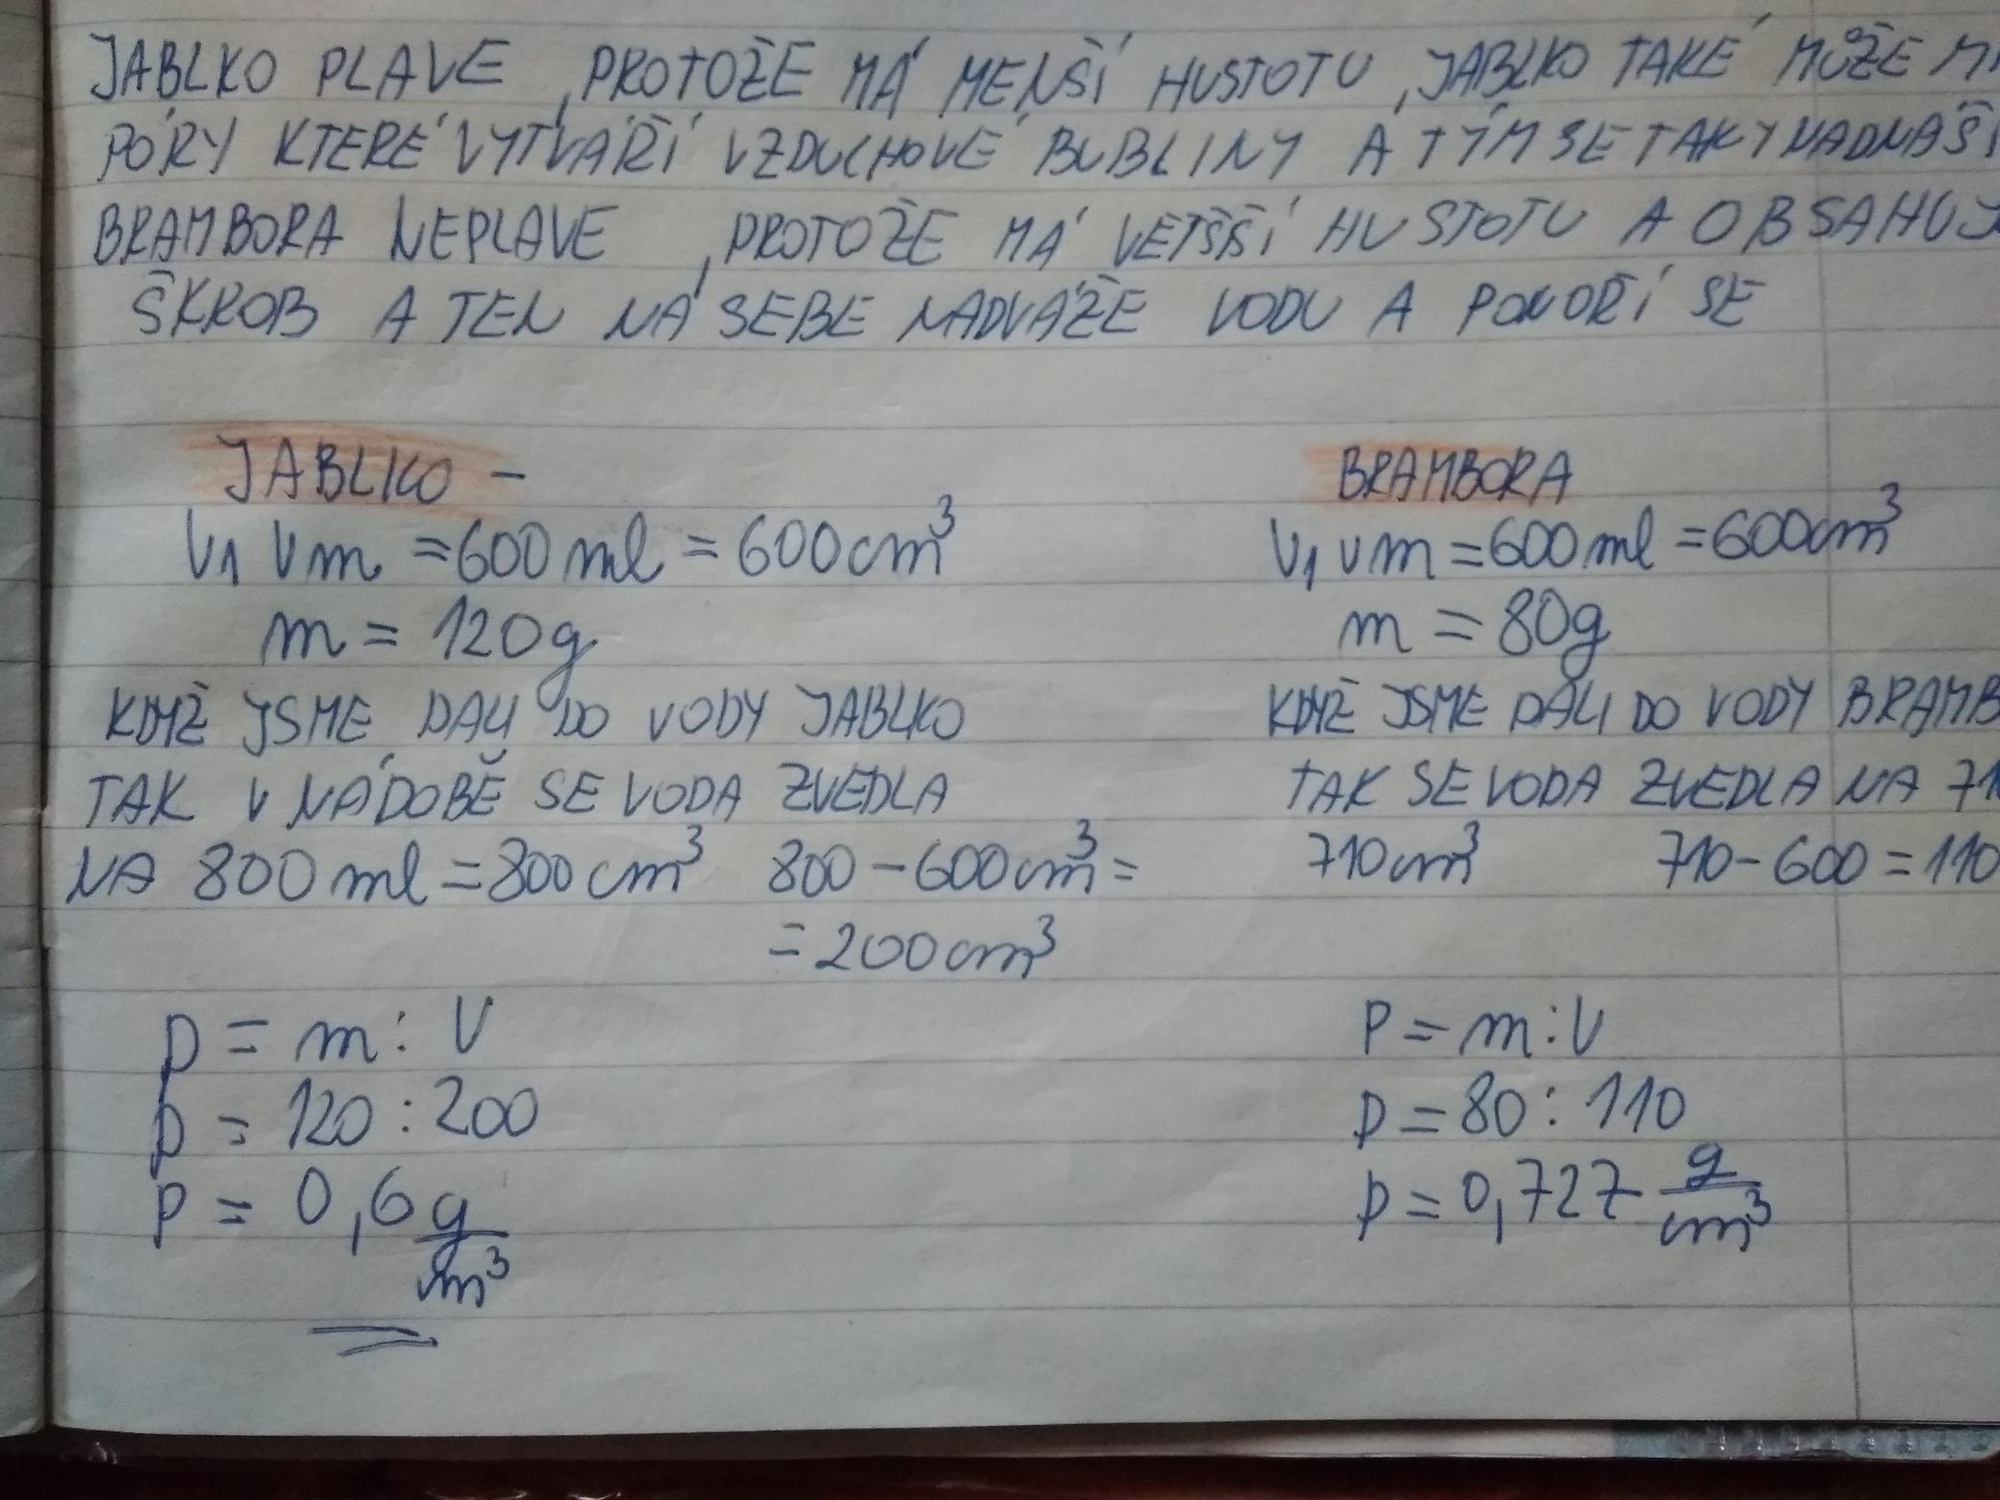 JABLKO PLAVE, PROTOŽE MÁ MENŠÍ HUSTOTU, JABLKO TAKÉ MŮŽE
PÓRY KTERÉ VYTVÁŘÍ VZDUCHOVÉ BUBLINY A TÍM SE TAKY NADNÁŠÍ
BRAMBORA NEPLAVE, PROTOŽE MÁ VETŠŠÍ HUSTOTU A OBSAHUJ
ŠKROB A TEN NA SEBE NADVÁŽE VODU A PONOŘÍ SE
JABLKO –
V1 Vm = 600 ml = 600 cm³
m = 120g
KDYŽ JSME DALI DO VODY JABLKO
TAK V NÁDOBĚ SE VODA ZVEDLA
NA 800 ml = 800 cm³ 800 – 600 cm³ =
= 200 cm³
p = m : V
p = 120 : 200
p = 0,6 g/cm³
BRAMBORA
V1 Vm = 600 ml = 600 cm³
m = 80g
KDYŽ JSME DALI DO VODY BRAMB
TAK SE VODA ZVEDLA NA 71
710 cm³ 710 – 600 = 110
p = m : V
p = 80 : 110
p = 0,727 g/cm³